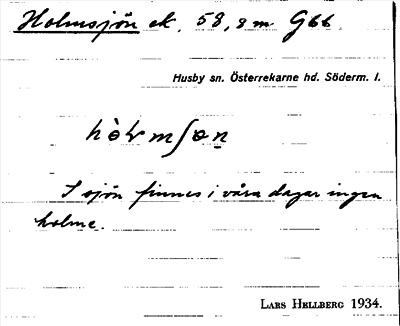 Holmsjön ek. 58,8 m Gbb.
Husby sn. Österrekarne hd. Söderm. l.
I sjön finnes i våra dagar ingen
holme.
LARS HELLBERG 1934.